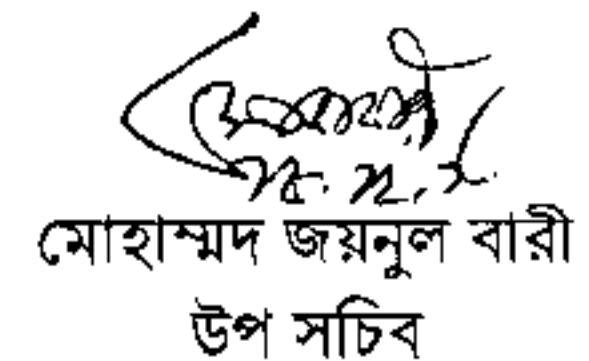 মোহাম্মদ জয়নুল বারী
উপ সচিব